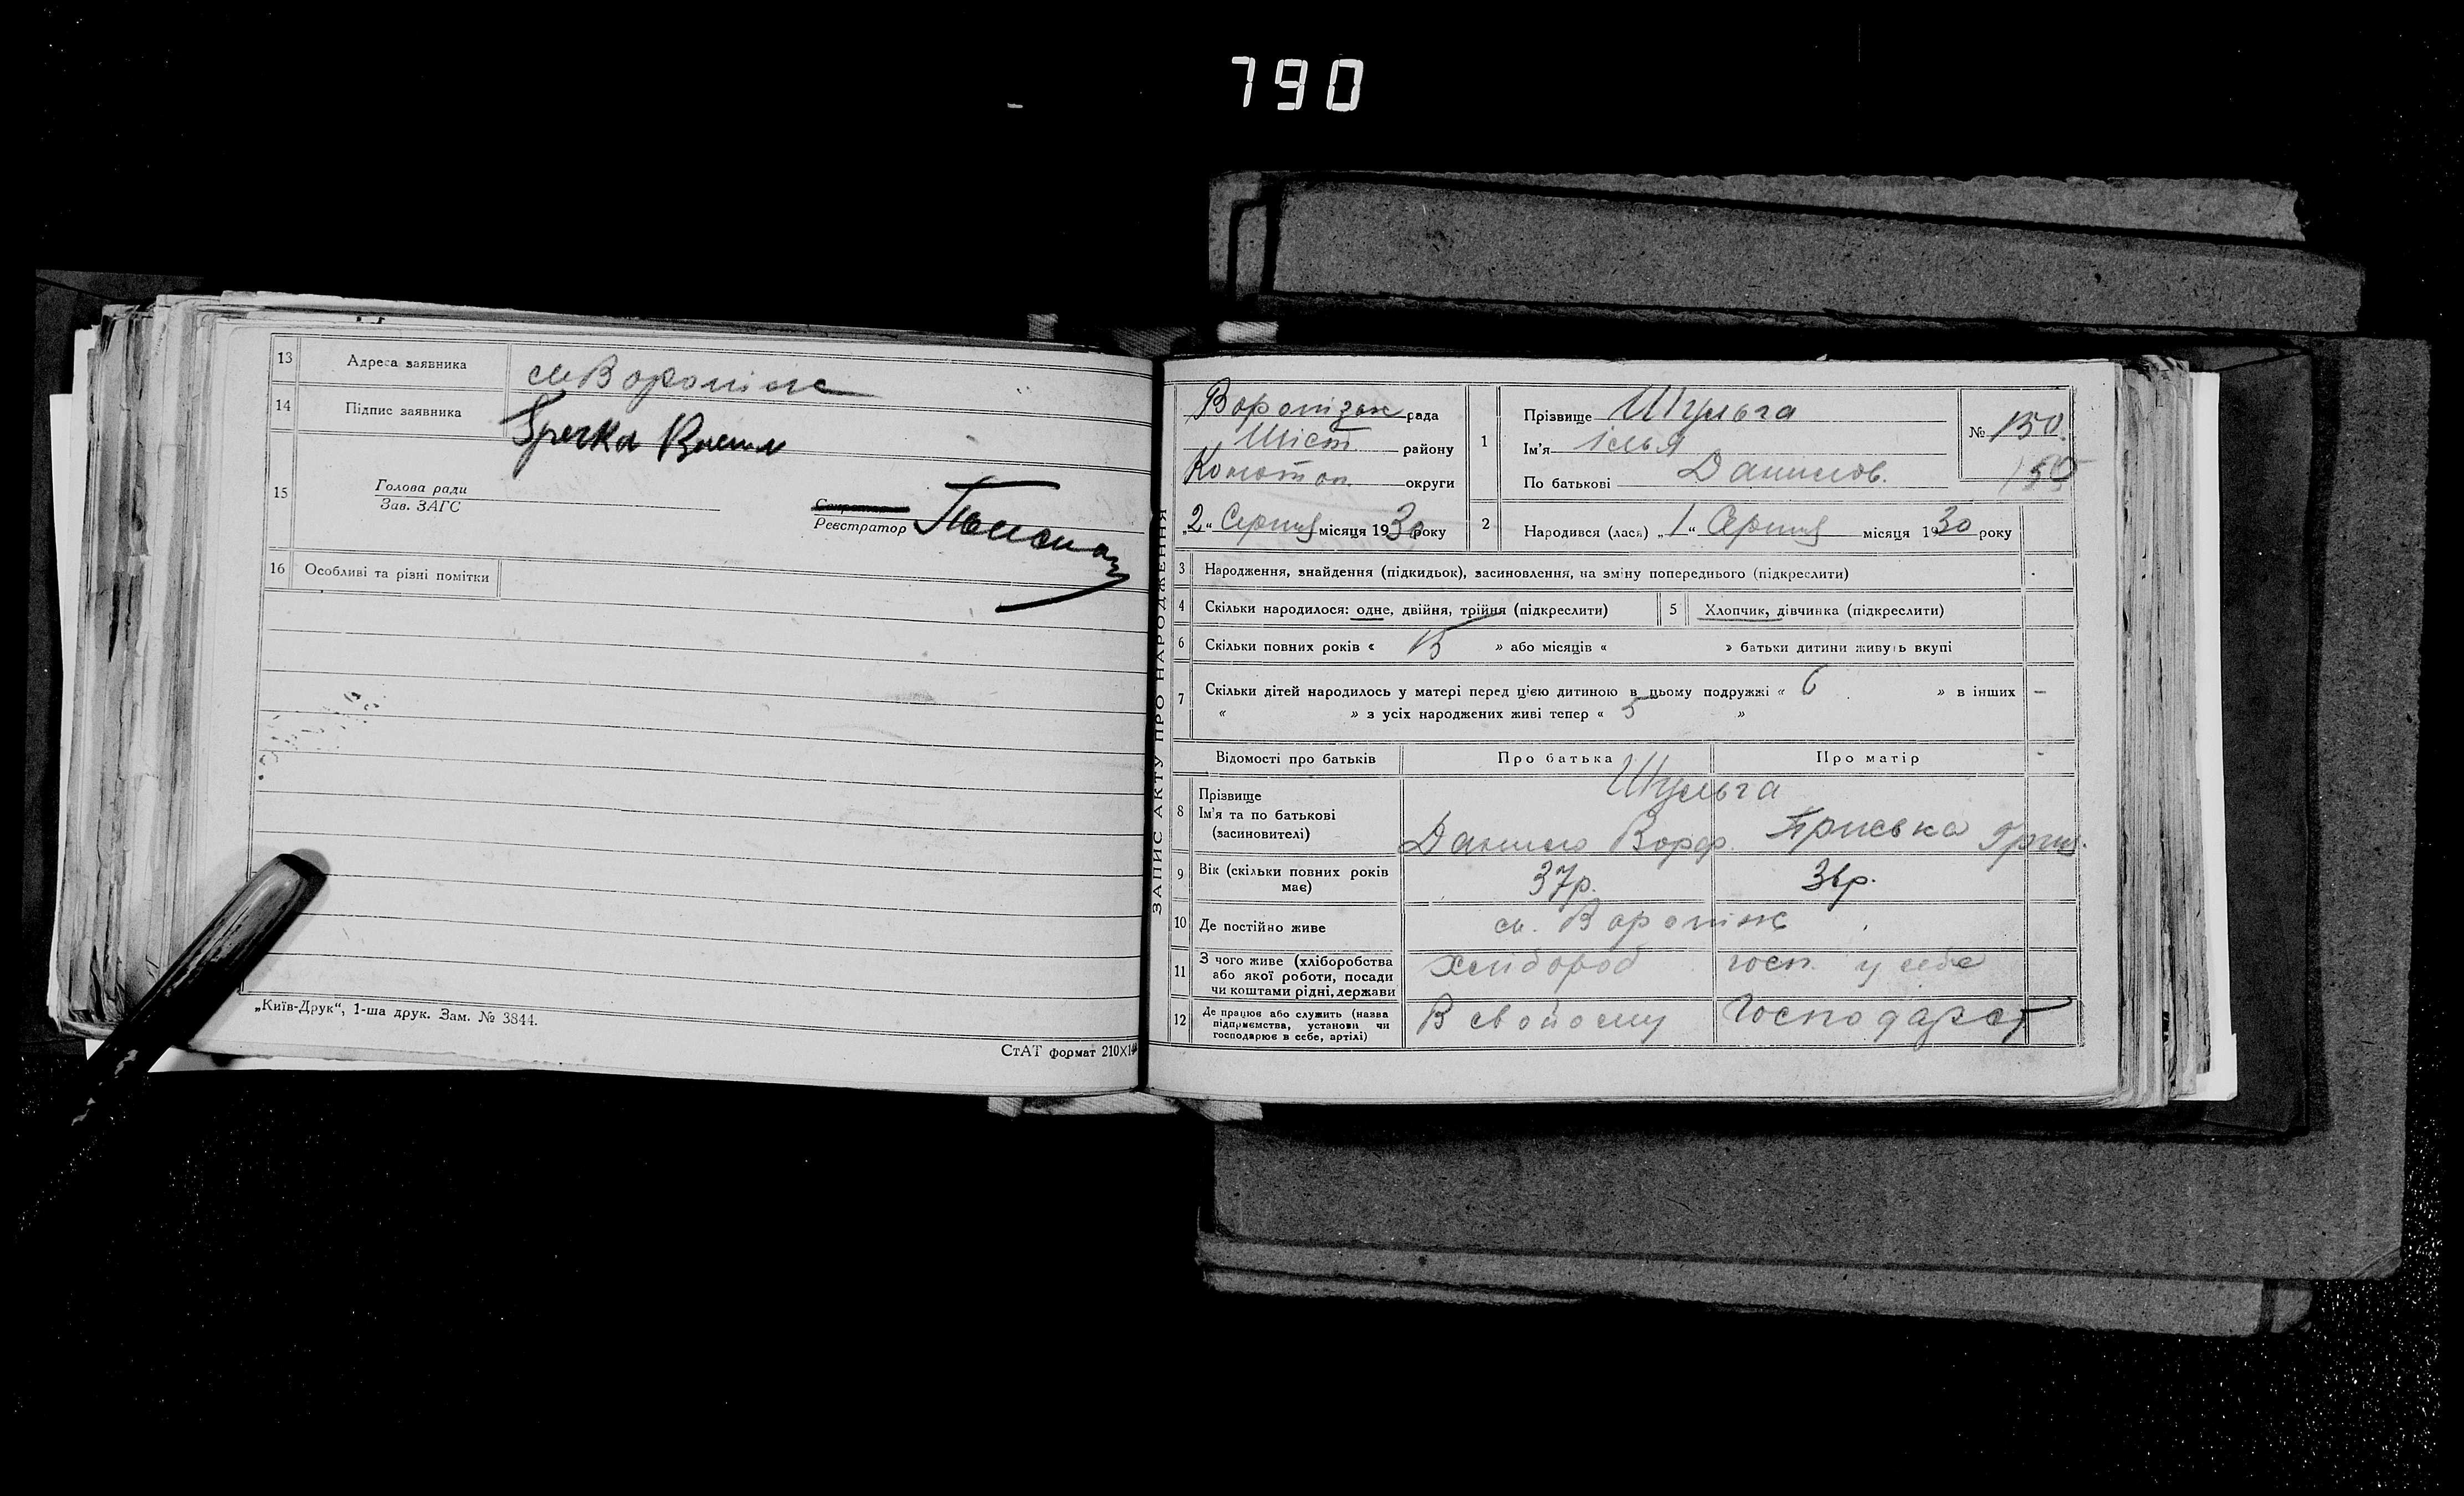 790
13 Адреса заявника см Вороніж
14 Підпис заявника Гречка
15 Голова ради
Зав. ЗАГС
Секретар
Реєстратор
16 Особливі та різні помітки
„Київ-Друк“, 1-ша друк. Зам. № 3844.
СтАТ формат 210X14
ЗАПИС АКТУ ПРО НАРОДЖЕННЯ
Вороніжск рада
Шіст району
Конотоп округи
„2“ Серпня місяця 1930 року
1 Прізвище Шульга
Ім'я ілья
По батькові Данилов.
№ 150.
150
2 Народився (лася) „1“ Серпня місяця 1930 року
3 Народження, знайдення (підкидьок), засиновлення, на зміну попереднього (підкреслити)
4 Скільки народилося: одне, двійня, трійня (підкреслити)
5 Хлопчик, дівчинка (підкреслити)
6 Скільки повних років « 15 » або місяців « » батьки дитини живуть вкупі
7 Скільки дітей народилось у матері перед цією дитиною в цьому подружжі « 6 » в інших —
« » з усіх народжених живі тепер « 5 »
Відомості про батьків Про батька Про матір
8 Прізвище Шульга
Ім'я та по батькові
(засиновителі) Данило Ворф. Приська Григ.
9 Вік (скільки повних років має) 37р. 36р.
10 Де постійно живе см. Вороніж
11 З чого живе (хліборобства
або якої роботи, посади
чи коштами рідні, держави хлібороб госп. у себе
12 Де працює або служить (назва
підприємства, установи чи
господарює в себе, артілі) В свойому Господарст